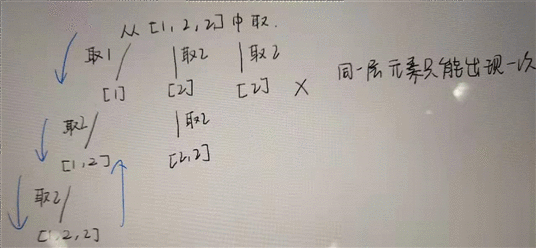 从[1,2,2]中取.
取1 取2 取2
[1] [2] [2] × 同一层元素只能出现一次
取2 取2
[1,2] [2,2]
取2
[1,2,2]